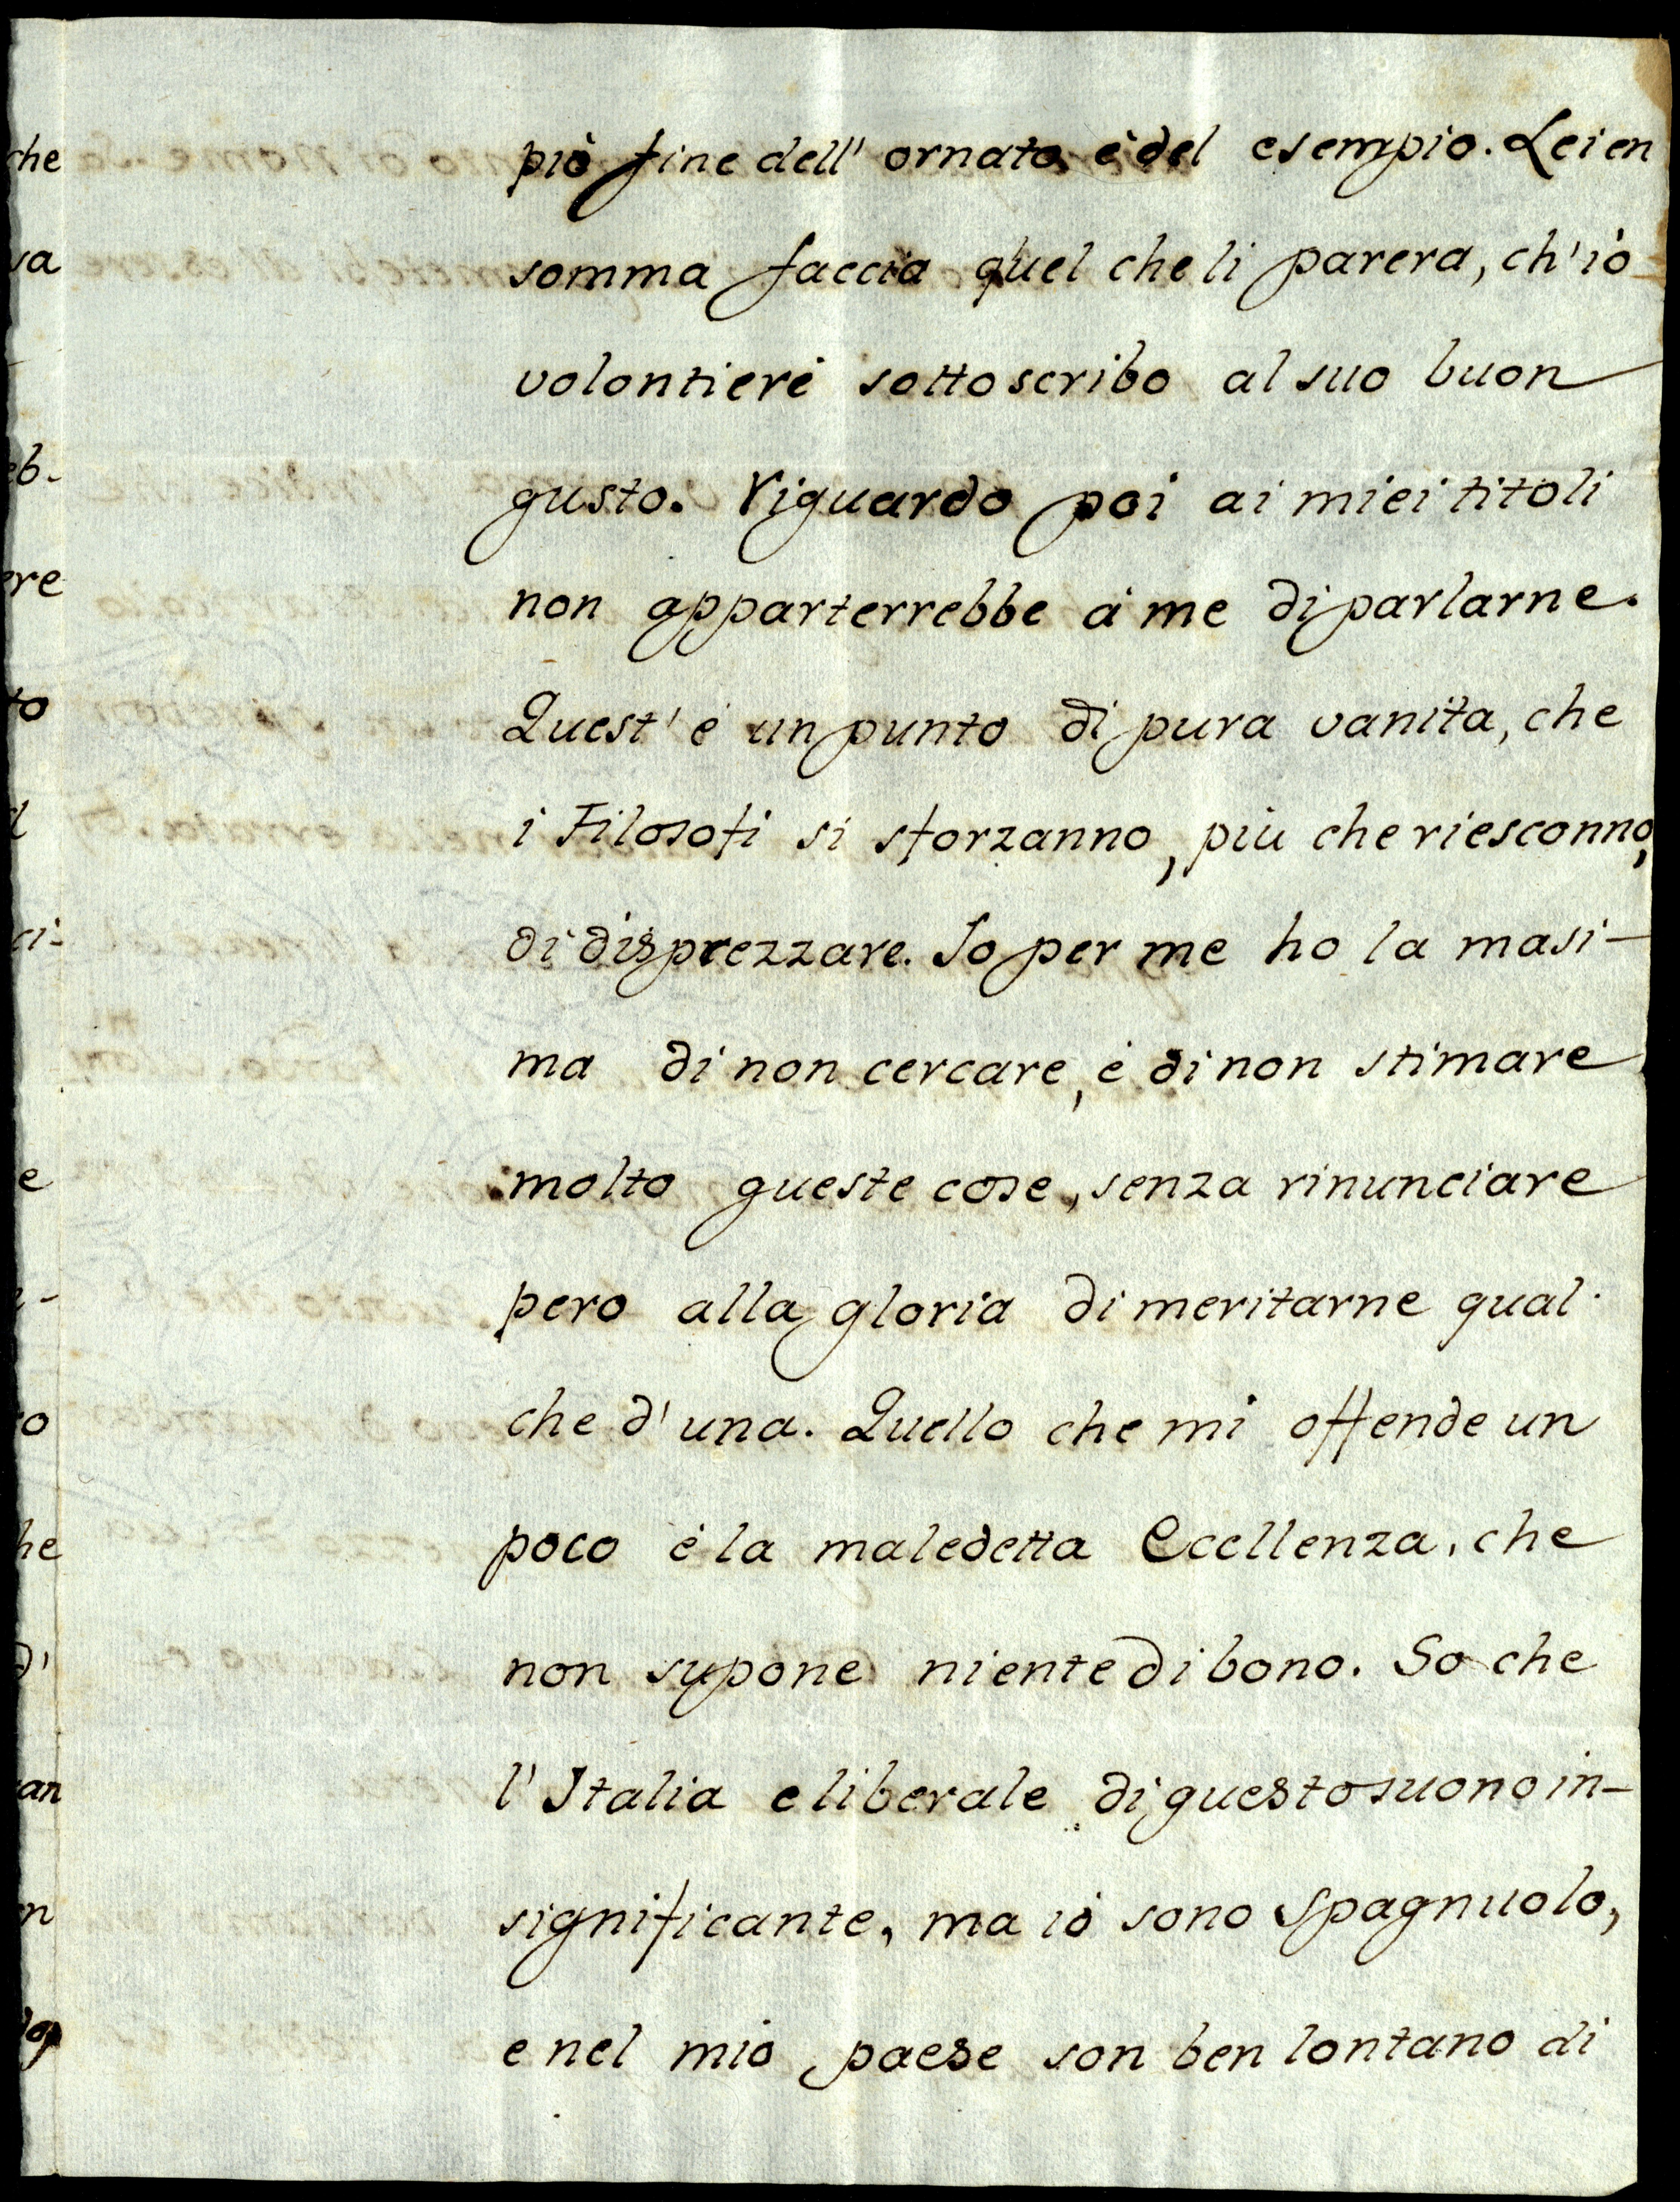 piò fine dell' ornato, é del esempio. Lei en
somma faccia quel che li parera, ch'iò
volontieri sottoscribo al suo buon
gusto. Riguardo poi ai miei titoli
non apparterrebbe à me di parlarne.
Quest' é un punto di pura vanita, che
i Filosofi si sforzanno, più che riesconno,
di disprezzare. Io per me ho la masi-
ma di non cercare, é di non stimare
molto queste cose, senza rinunciare
pero alla gloria di meritarne qual-
che d'una. Quello che mi offende un
poco é la maledetta Eccellenza, che
non supone niente di bono. So che
l'Italia e liberale di questo suono in-
significante, ma iò sono Spagnuolo,
e nel mio paese son ben lontano di
che
va
eb-
ere
to
d
ci-
e
o
he
d'
an
n